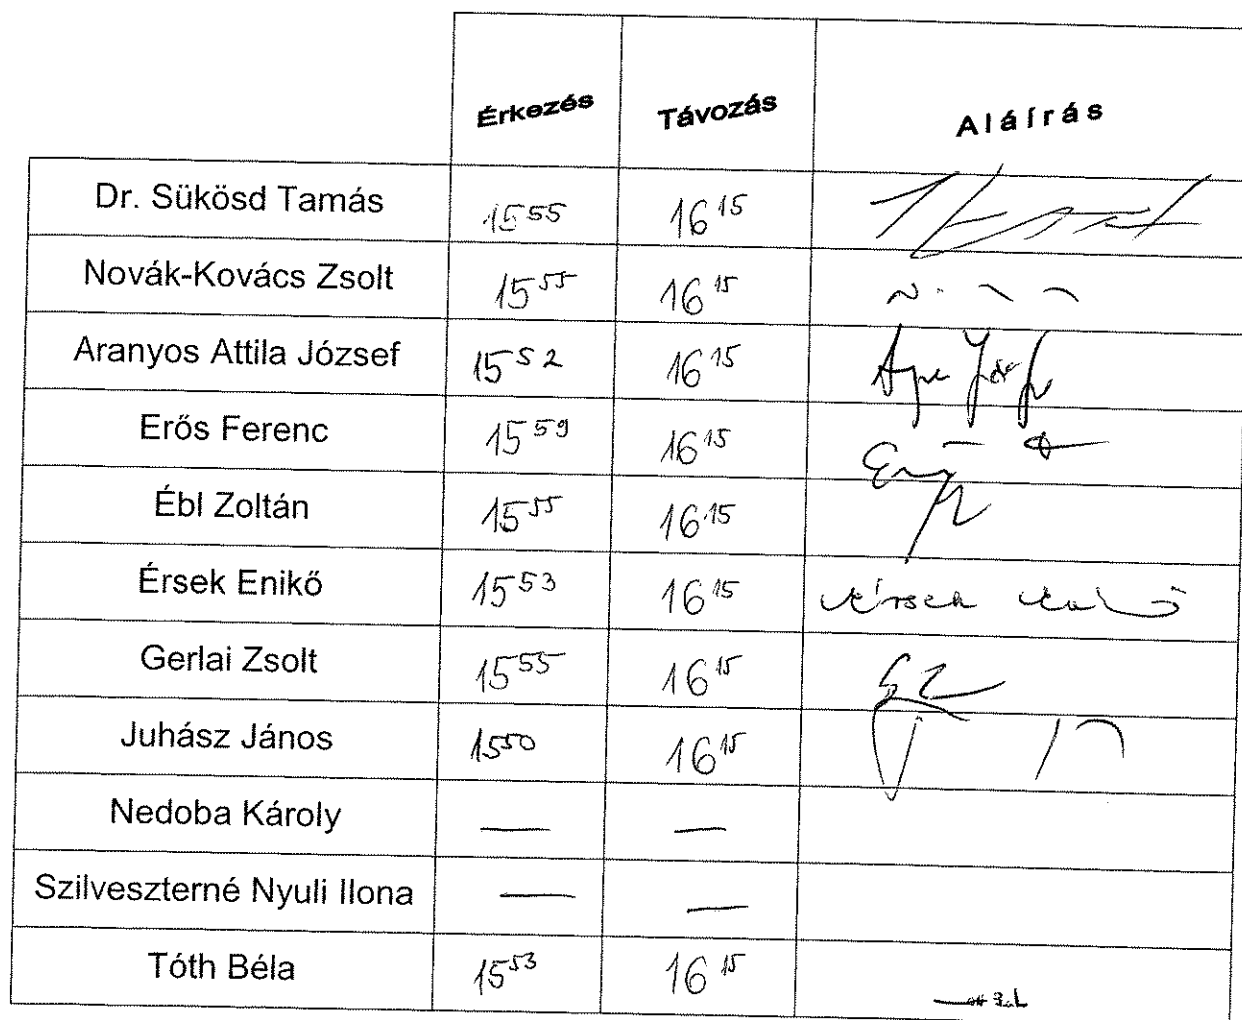 Érkezés Távozás Aláírás
Dr. Sükösd Tamás 15 55 16 15
Novák-Kovács Zsolt 15 55 16 15
Aranyos Attila József 15 52 16 15
Erős Ferenc 15 59 16 15
Ébl Zoltán 15 55 16 15
Érsek Enikő 15 53 16 15 Érsek Enikő
Gerlai Zsolt 15 55 16 15 GZ
Juhász János 15 50 16 15
Nedoba Károly — —
Szilveszterné Nyuli Ilona — —
Tóth Béla 15 53 16 15